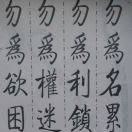 勿為名累
勿為利鎖
勿為權迷
勿為欲困